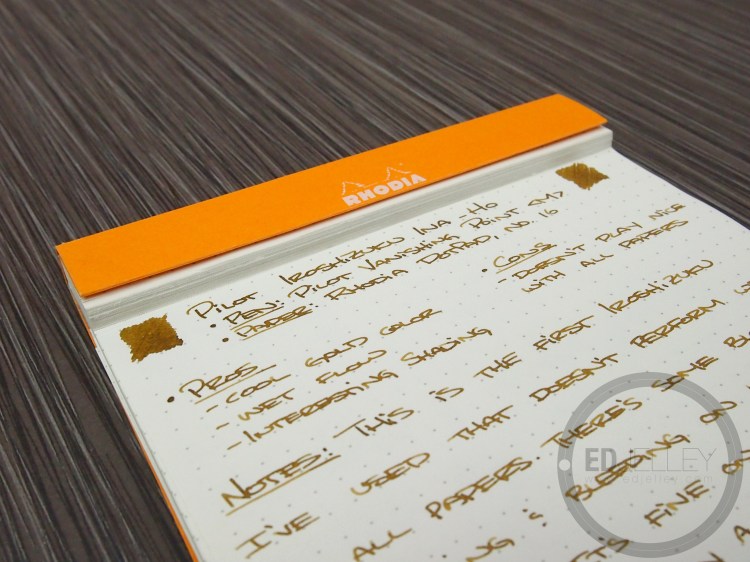 RHODIA
PILOT IROSHIZUKU INA-HO
• PEN: PILOT VANISHING POINT <M>
• PAPER: RHODIA DOTPAD, NO. 16
• PROS
- COOL GOLD COLOR
- WET FLOW
- INTERESTING SHADING
• CONS
- DOESN'T PLAY NICE
WITH ALL PAPERS
NOTES: THIS IS THE FIRST IROSHIZUKU
I'VE USED THAT DOESN'T PERFORM
ALL PAPERS. THERE'S SOME
& BLEEDING ON
FINE ON
ED JELLEY
edjelley.com